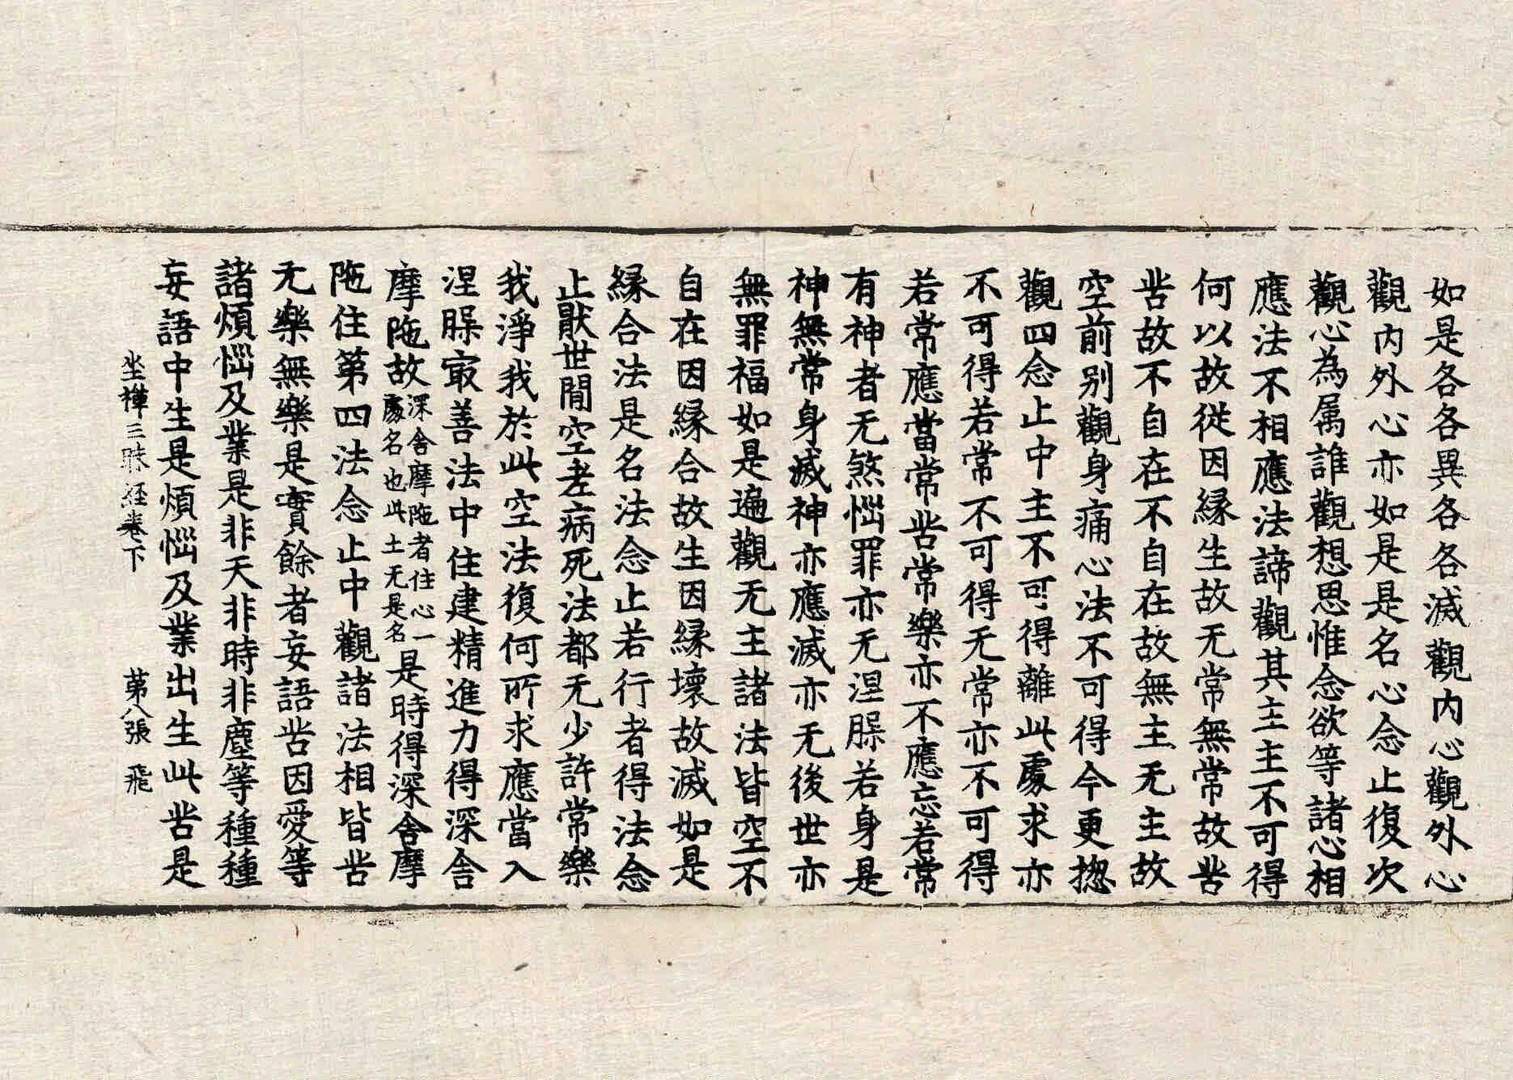 如是各各異各各滅觀內心觀外心
觀內外心亦如是是名心念止復次
觀心為属誰觀想思惟念欲等諸心相
應法不相應法諦觀其主主不可得
何以故從因縁生故无常無常故苦
苦故不自在不自在故無主无主故
空前别觀身痛心法不可得今更揔
觀四念止中主不可得離此䖏求亦
不可得若常不可得无常亦不可得
若常應當常苦常樂亦不應忘若常
有神者无煞惱罪亦无涅槃若身是
神無常身滅神亦應滅亦无後世亦
無罪福如是遍觀无主諸法皆空不
自在因縁合故生因縁壞故滅如是
縁合法是名法念止若行者得法念
止猒世間空老病死法都无少許常樂
我淨我於此空法復何所求應當入
涅槃冣善法中住建精進力得深舍
摩陁故深舍摩陁者住心一䖏名也此土无是名是時得深舍摩
陁住第四法念止中觀諸法相皆苦
无樂無樂是實餘者妄語苦因愛等
諸煩惱及業是非天非時非塵等種種
妄語中生是煩惱及業出生此苦是
坐禪三昧経卷下　第八張　飛